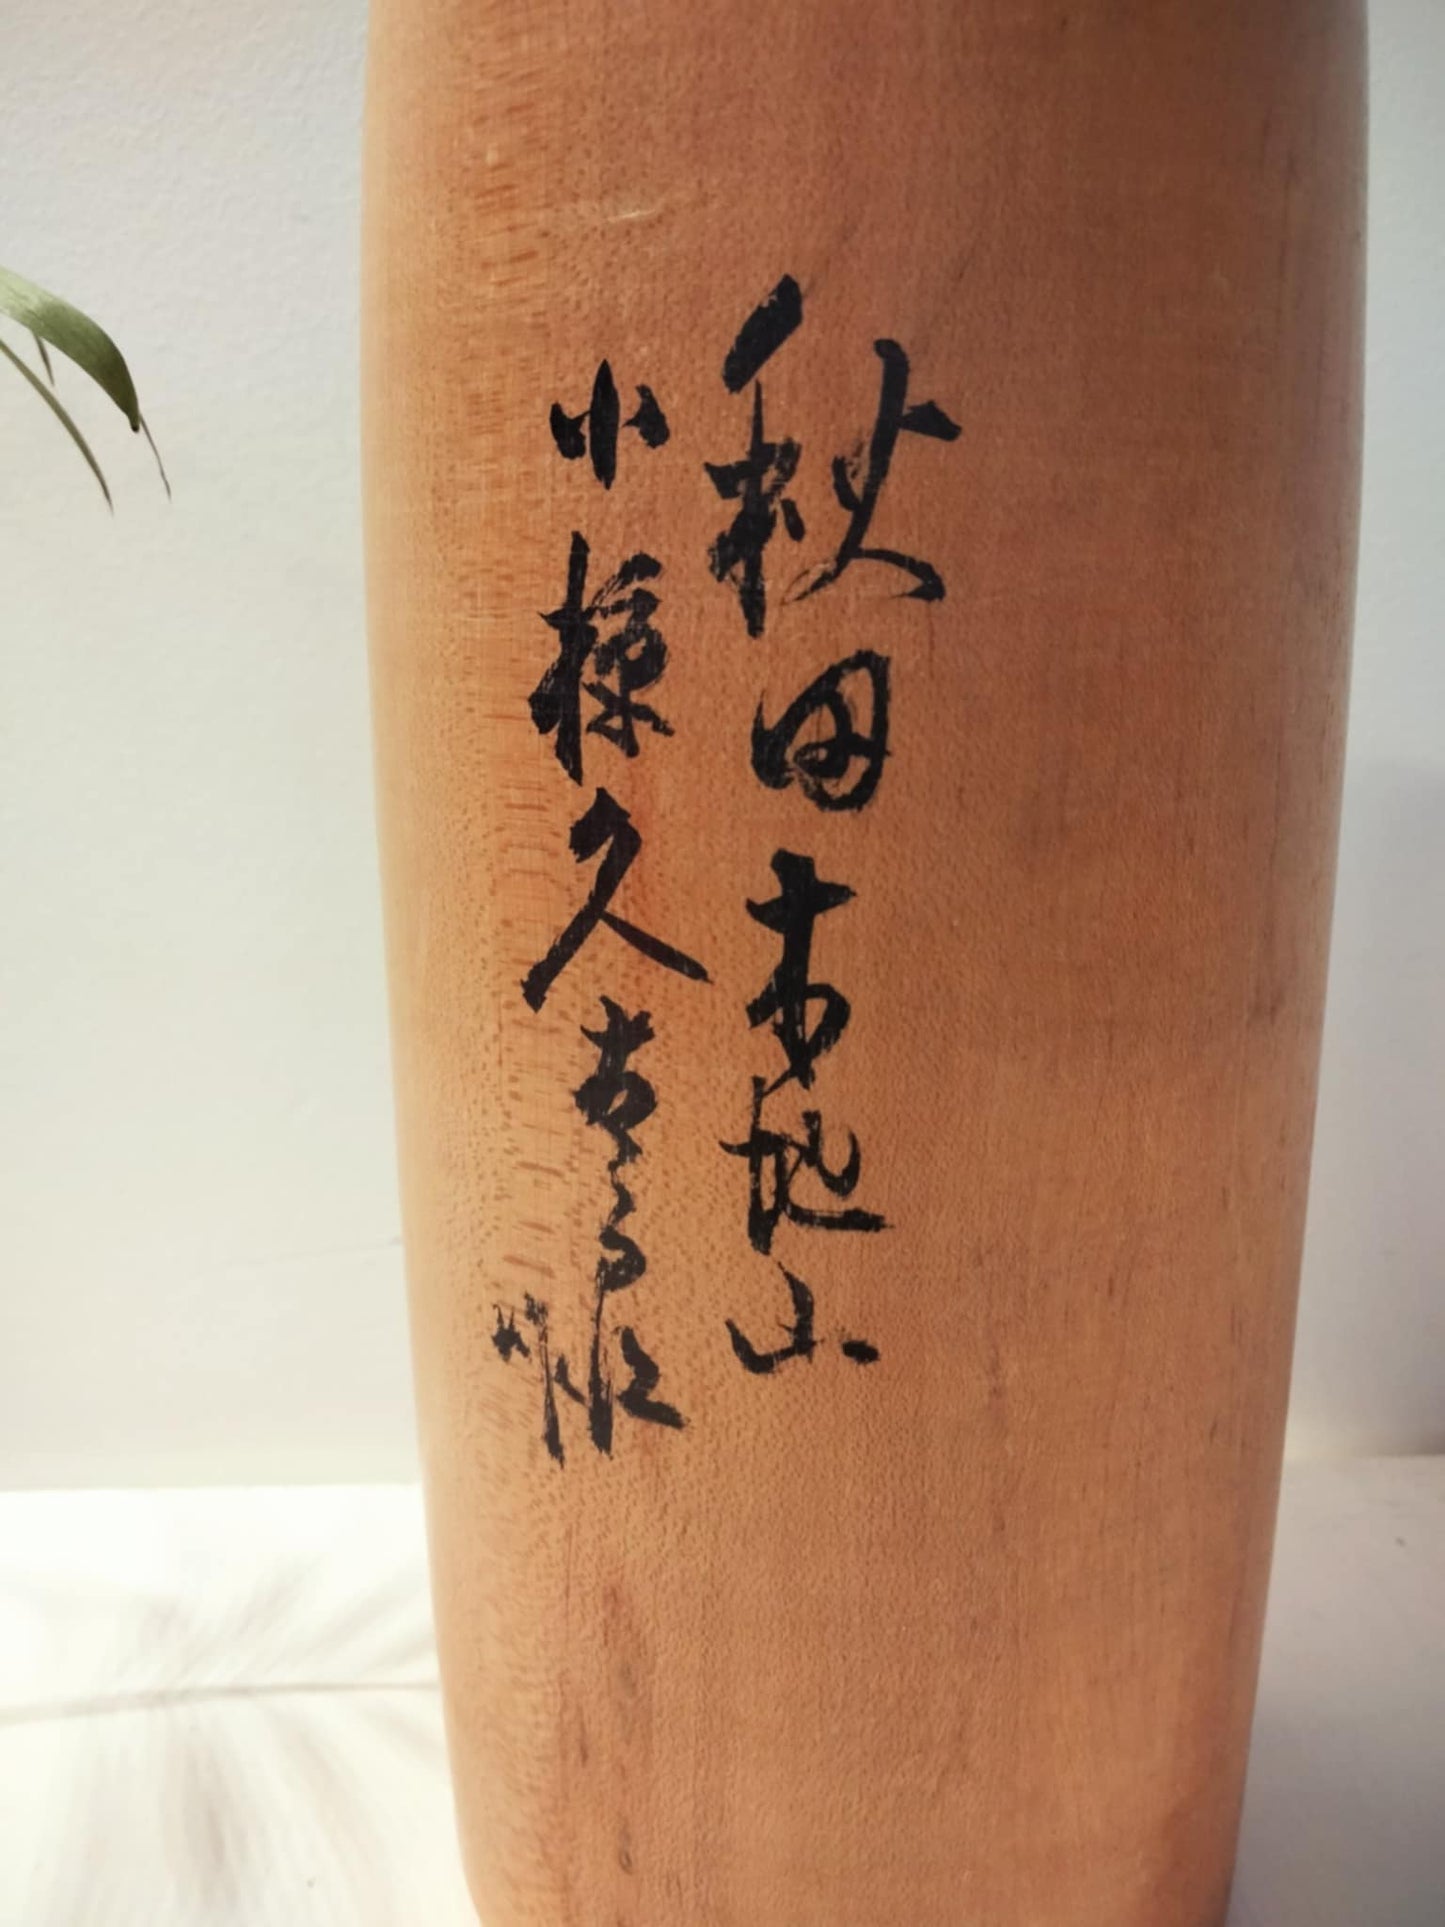 秋田木地山
小椋久太郎